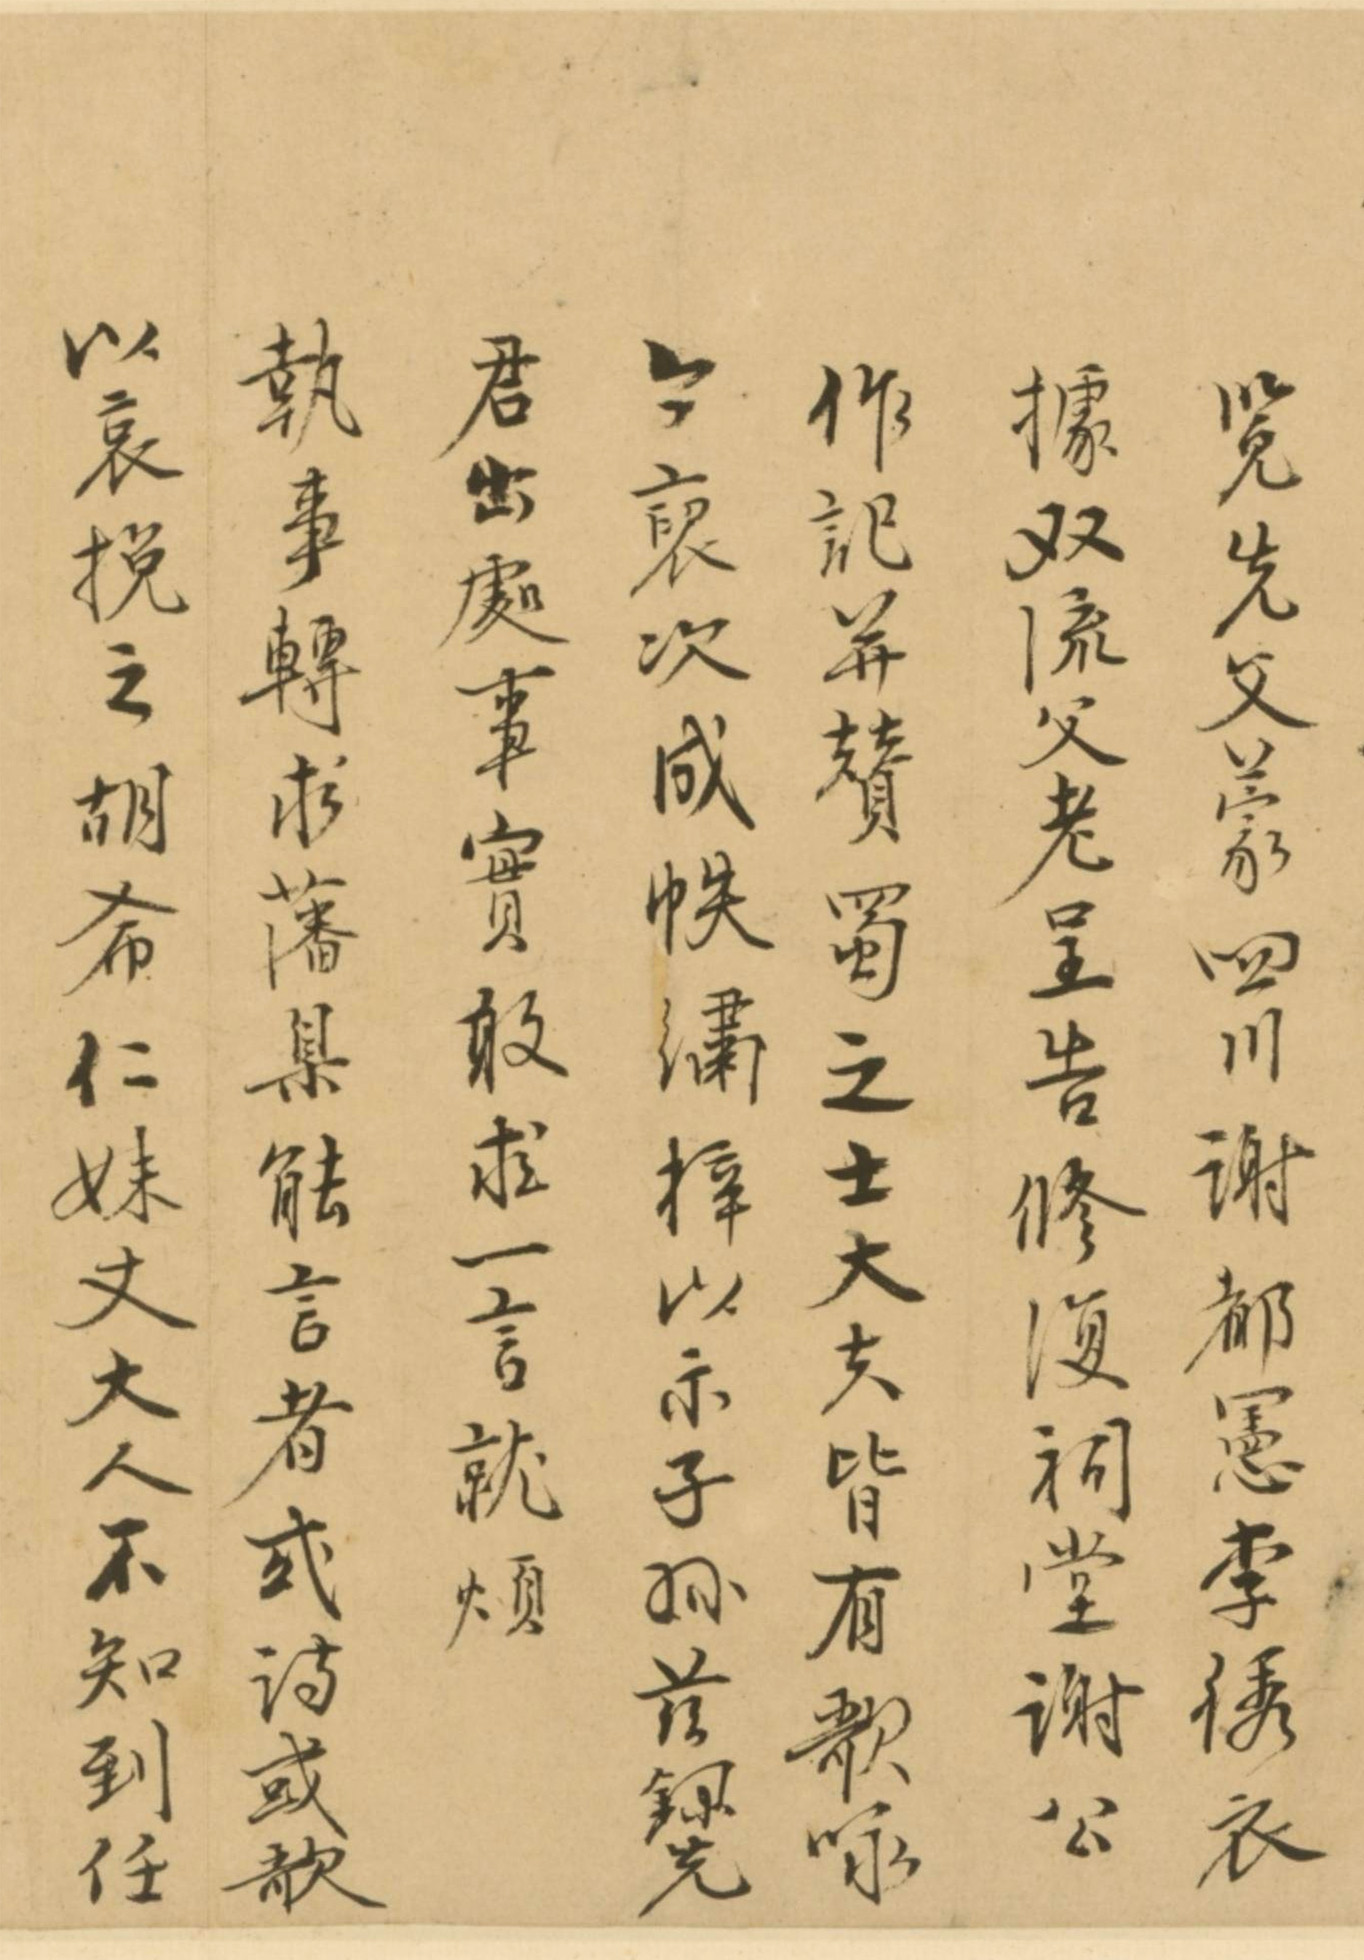 覽先父蒙四川謝都憲李綉衣
據双流父老呈告修復祠堂謝公
作記并贊蜀之士大夫皆有歌咏
今裒次成帙繡梓以示子孫茲錄先
君出處事實敢求一言就煩
執事轉求藩臬能言者或詩或歌
以哀挽之胡希仁妹丈大人不知到任